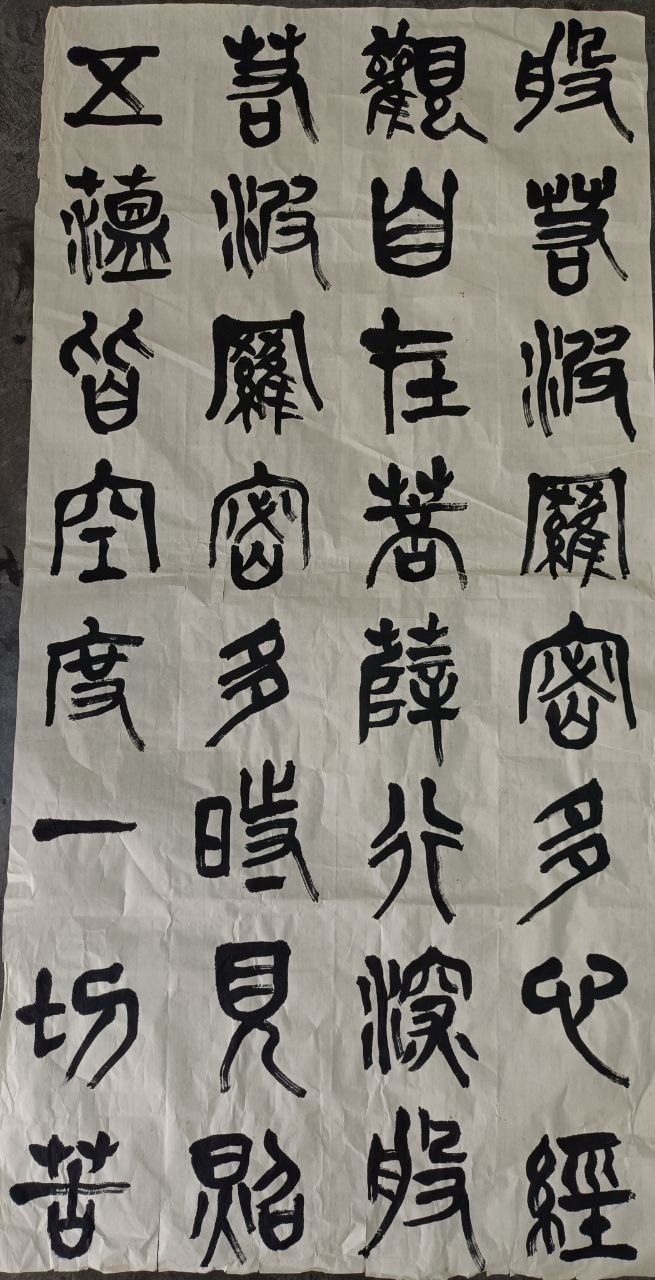 般若波羅密多心經
觀自在菩薛行深般
若波羅密多時見照
五蘊皆空度一切苦